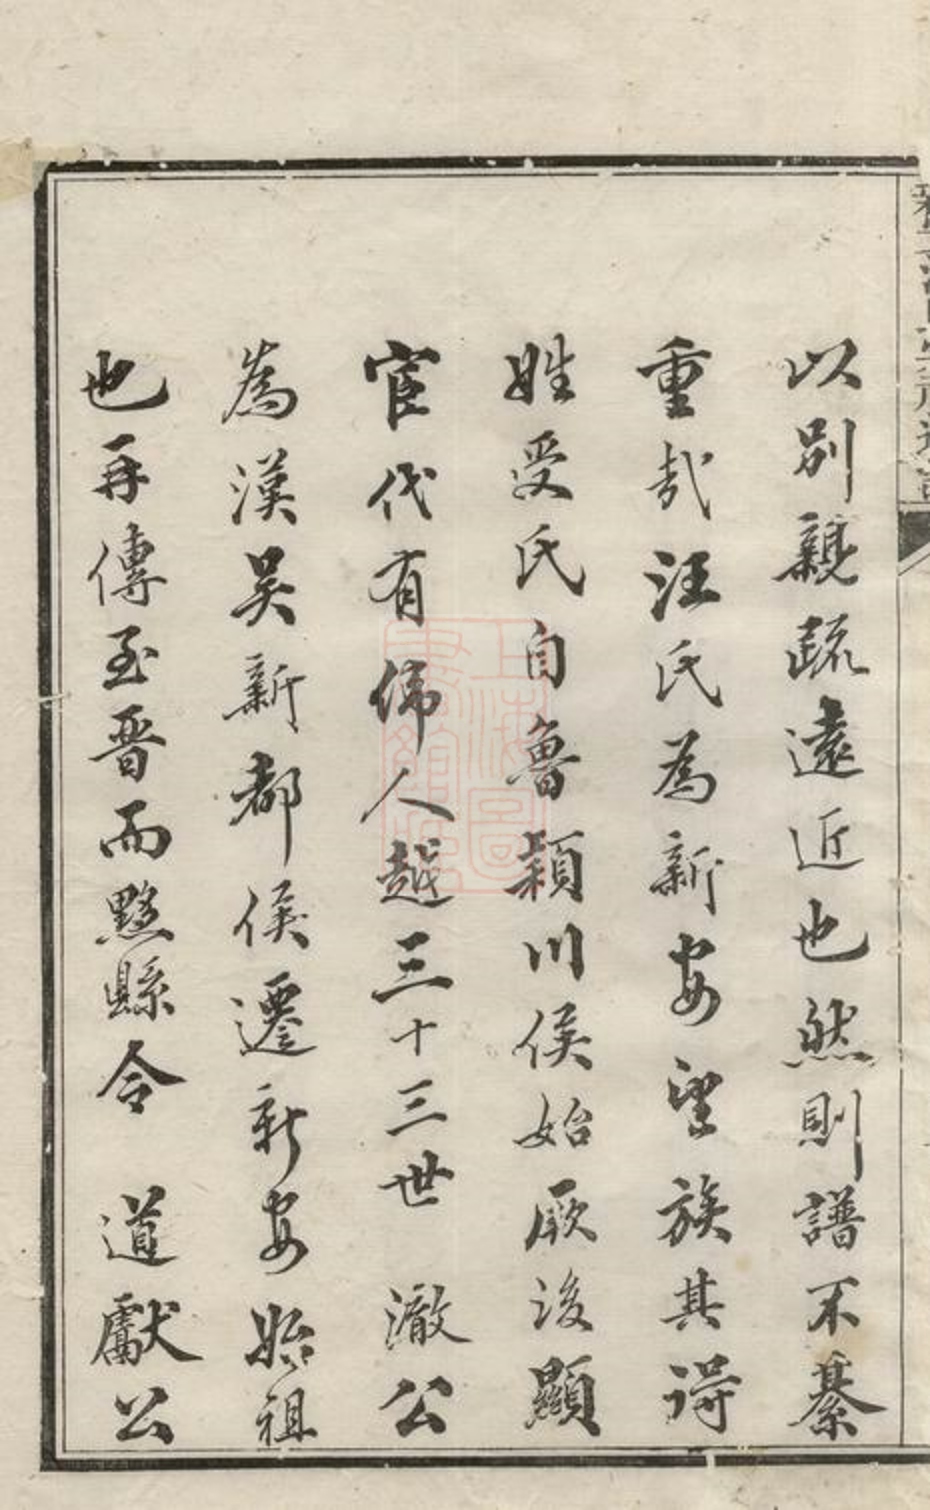 以別親疏遠近也然則譜不綦
重哉汪氏為新安望族其得
姓受氏自魯潁川侯始厥後顯
宦代有偉人越三十三世 澈公
為漢吳新都侯遷新安始祖
也再傳至晉而黟縣令 道獻公
上海圖
書館藏